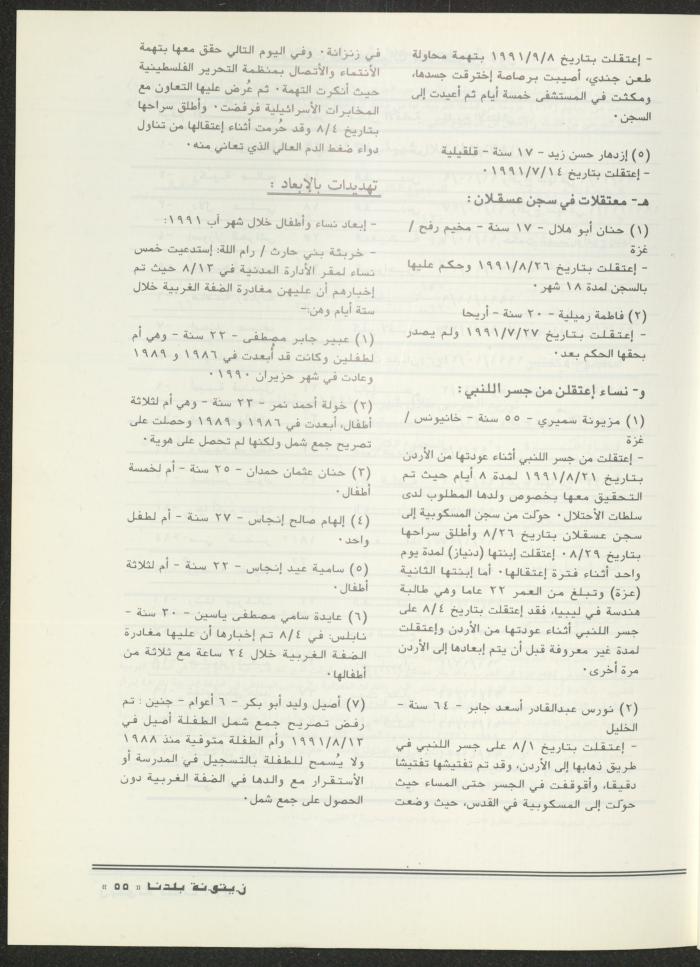 - إعتقلت بتاريخ ١٩٩١/٩/٨ بتهمة محاولة
طعن جندي، أصيبت برصاصة إخترقت جسدها،
ومكثت في المستشفى خمسة أيام ثم أعيدت إلى
السجن٠
(٥) إزدهار حسن زيد - ١٧ سنة - قلقيلية
- إعتقلت بتاريخ ١٩٩١/٧/١٤ ٠
هـ- معتقلات في سجن عسقلان :
(١) حنان أبو هلال - ١٧ سنة - مخيم رفح /
غزة
- إعتقلت بتاريخ ١٩٩١/٨/٢٦ وحكم عليها
بالسجن لمدة ١٨ شهر٠
(٢) فاطمة رميلية - ٢٠ سنة - أريحا
- إعتقلت بتاريخ ١٩٩١/٧/٢٧ ولم يصدر
بحقها الحكم بعد٠
و- نساء إعتقلن من جسر اللنبي :
(١) مزيونة سميري - ٥٥ سنة - خانيونس /
غزة
- إعتقلت من جسر اللنبي أثناء عودتها من الأردن
بتاريخ ١٩٩١/٨/٢١ لمدة ٨ أيام حيث تم
التحقيق معها بخصوص ولدها المطلوب لدى
سلطات الأحتلال٠ حولّت من سجن المسكوبية إلى
سجن عسقلان بتاريخ ٨/٢٦ وأطلق سراحها
بتاريخ ٨/٢٩ ٠ إعتقلت إبنتها (دنياز) لمدة يوم
واحد أثناء فترة إعتقالها٠ أما إبنتها الثانية
(عزة) وتبلغ من العمر ٢٢ عاما وهي طالبة
هندسة في ليبيا، فقد إعتقلت بتاريخ ٨/٤ على
جسر اللنبي أثناء عودتها من الأردن وإعتقلت
لمدة غير معروفة قبل أن يتم إبعادها إلى الأردن
مرة أخرى٠
(٢) نورس عبدالقادر أسعد جابر - ٦٤ سنة -
الخليل
- إعتقلت بتاريخ ٨/١ على جسر اللنبي في
طريق ذهابها إلى الأردن، وقد تم تفتيشها تفتيشا
دقيقا، وأقوقفت في الجسر حتى المساء حيث
حولّت إلى المسكوبية في القدس، حيث وضعت
في زنزانة٠ وفي اليوم التالي حقق معها بتهمة
الأنتماء والأتصال بمنظمة التحرير الفلسطينية
حيث أنكرت التهمة٠ ثم عُرض عليها التعاون مع
المخابرات الأسرائيلية فرفضت٠ وأطلق سراحها
بتاريخ ٨/٤ وقد حُرمت أثناء إعتقالها من تناول
دواء ضغط الدم العالي الذي تعاني منه٠
تهديدات بالإبعاد :
- إبعاد نساء وأطفال خلال شهر آب ١٩٩١:
- خربثة بني حارث / رام الله: إستدعيت خمس
نساء لمقر الأدارة المدنية في ٨/١٣ حيث تم
إخبارهم أن عليهن مغادرة الضفة الغربية خلال
ستة أيام وهن:-
(١) عبير جابر مصطفى - ٢٣ سنة - وهي أم
لطفلين وكانت قد أُبعدت في ١٩٨٦ و ١٩٨٩
وعادت في شهر حزيران ١٩٩٠ ٠
(٢) خولة أحمد نمر - ٢٣ سنة - وهي أم لثلاثة
أطفال، أبعدت في ١٩٨٦ و ١٩٨٩ وحصلت على
تصريح جمع شمل ولكنها لم تحصل على هوية٠
(٣) حنان عثمان حمدان - ٢٥ سنة - أم لخمسة
أطفال٠
(٤) إلهام صالح إنجاس - ٢٧ سنة - أم لطفل
واحد٠
(٥) سامية عيد إنجاس - ٢٢ سنة - أم لثلاثة
أطفال٠
(٦) عايدة سامي مصطفى ياسين - ٣٠ سنة -
نابلس: في ٨/٤ تم إخبارها أن عليها مغادرة
الضفة الغربية خلال ٢٤ ساعة مع ثلاثة من
أطفالها٠
(٧) أصيل وليد أبو بكر - ٦ أعوام - جنين : تم
رفض تصريح جمع شمل الطفلة أصيل في
١٩٩١/٨/١٣ وأم الطفلة متوفية منذ ١٩٨٨
ولا يُسمح للطفلة بالتسجيل في المدرسة أو
الأستقرار مع والدها في الضفة الغربية دون
الحصول على جمع شمل٠
زيتونة بلدنا « ٥٥ »